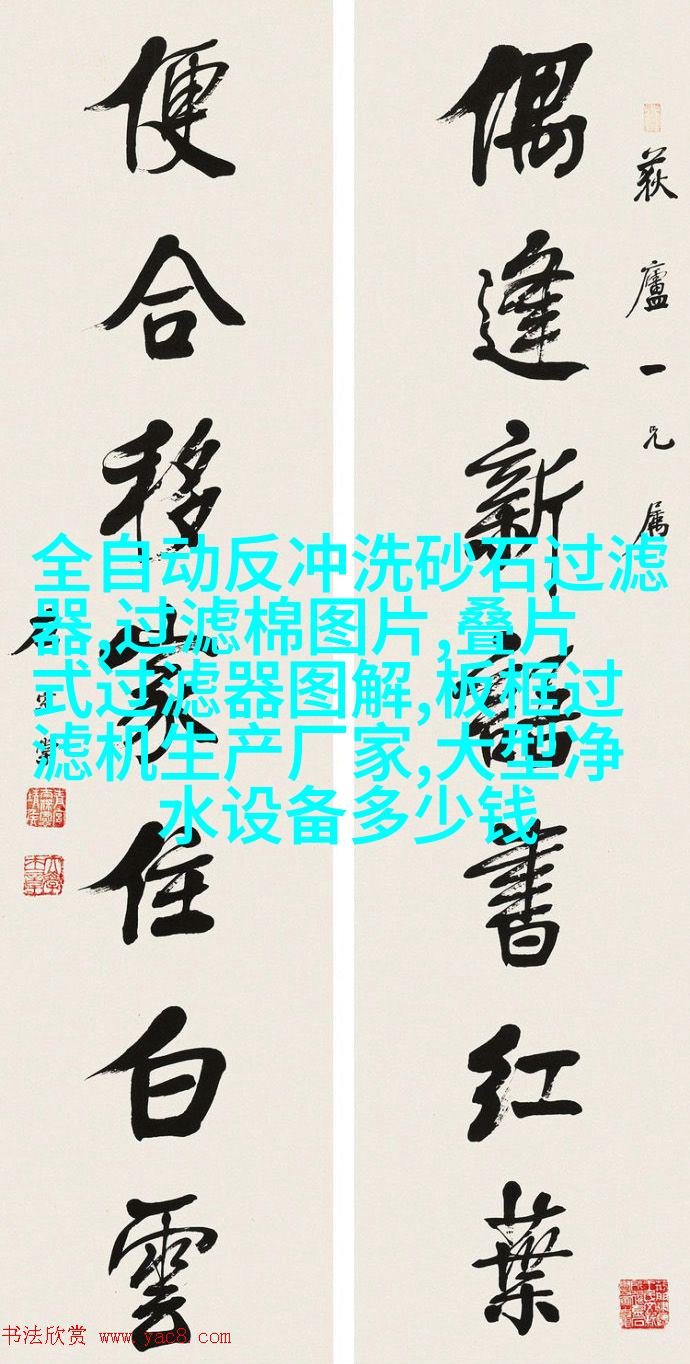 荻廬一兄屬
偶逢新語書紅葉
便合移家住白雲
左宗棠
全自动反冲洗砂石过滤
器,过滤棉图片,叠片
式过滤器图解,板框过
滤机生产厂家,大型净
水设备多少钱
书法欣赏 www.yac8.com